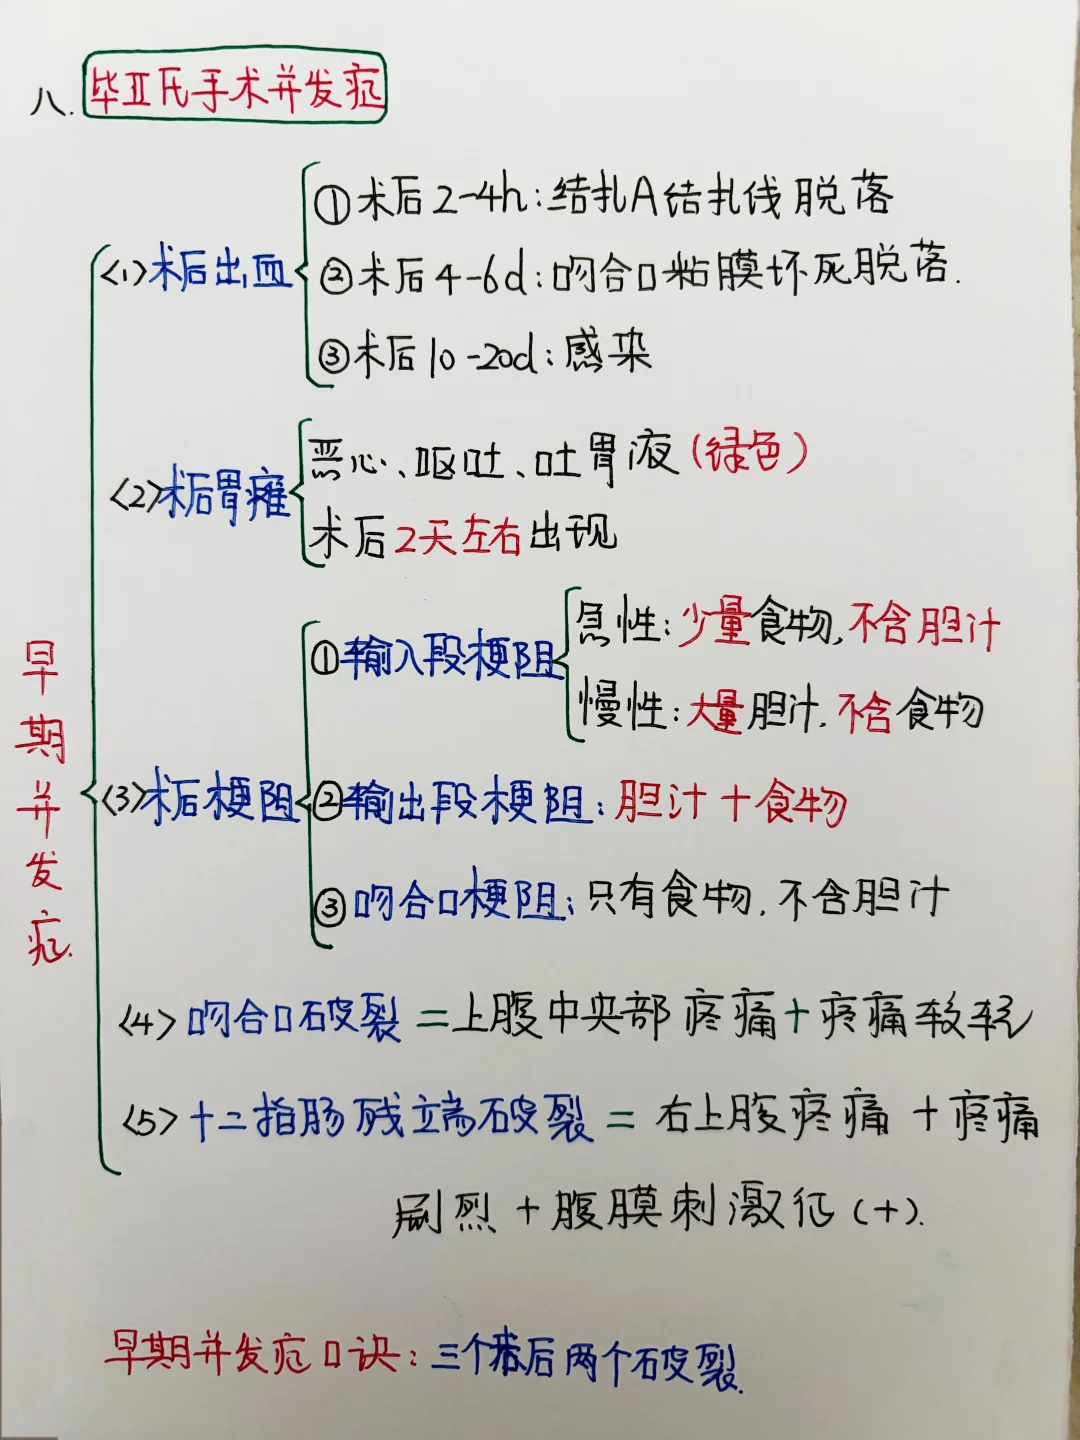 八. 毕亚氏手术并发症
(1)术后出血
①术后2-4h:结扎A结扎线脱落
②术后4-6d:吻合口粘膜坏死脱落.
③术后10-20d:感染
(2)术后胃瘫
恶心、呕吐、吐胃液(绿色)
术后2天左右出现
早期并发症.
(3)术后梗阻
①输入段梗阻
急性:少量食物,不含胆汁
慢性:大量胆汁,不含食物
②输出段梗阻:胆汁+食物
③吻合口梗阻:只有食物,不含胆汁
(4)吻合口破裂=上腹中央部疼痛+疼痛较轻
(5)十二指肠残端破裂=右上腹疼痛+疼痛
剧烈+腹膜刺激征(+).
早期并发症口诀:三个术后两个破裂.